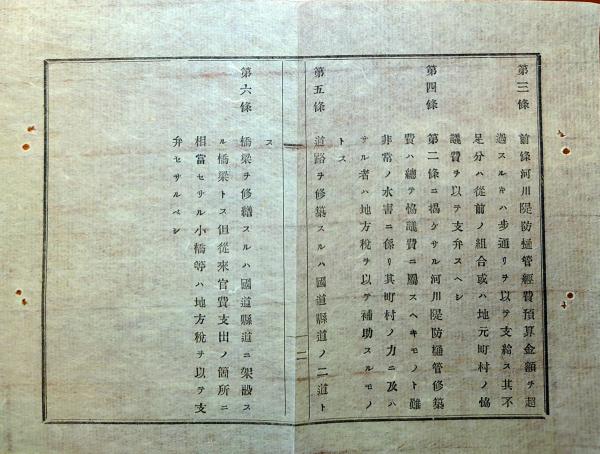 第三條　前條河川隄防樋管經費預算金額ヲ超
過スルキハ步通リヲ以テ支給ス其不
足分ハ從前ノ組合或ハ地元町村ノ恊
議費ヲ以テ支弁スヘシ
第四條　第二條ニ揭ケサル河川隄防樋管修築
費ハ總テ恊議費ニ屬スヘキモノト雖
非常ノ水害ニ係リ其町村ノ力ニ及ハ
サル者ハ地方稅ヲ以テ補助スルモノ
トス
第五條　道路ヲ修築スルハ國道縣道ノ二道ト
ス
第六條　橋梁ヲ修繕スルハ國道縣道ニ架設ス
ル橋梁トス但從来官費支出ノ箇所ニ
相當セサル小橋等ハ地方稅ヲ以テ支
弁セサルベシ
二